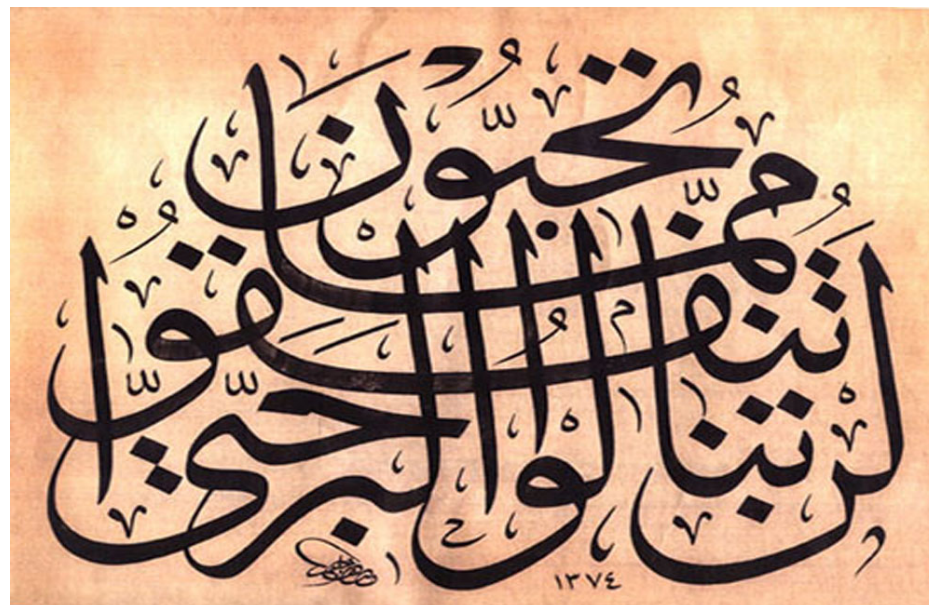 لَن تَنَالُوا الْبِرَّ حَتَّىٰ
تُنفِقُوا
مِمَّا تُحِبُّونَ
١٣٧٤